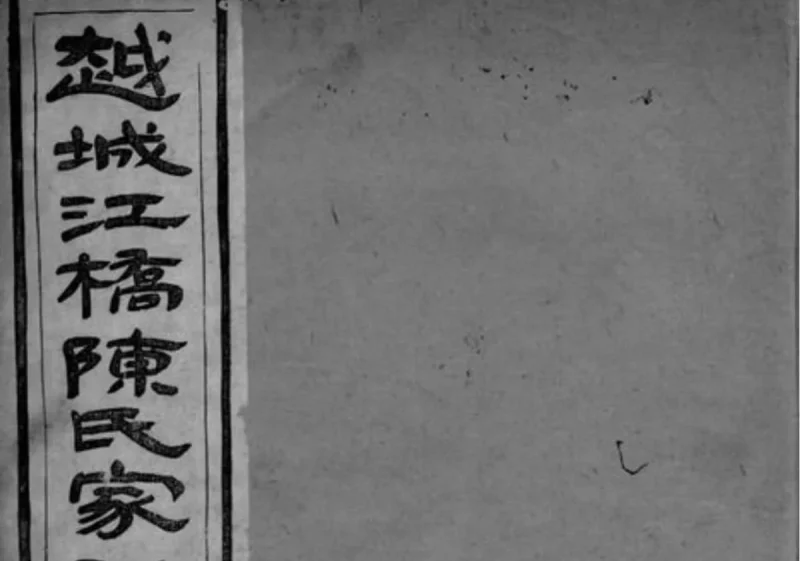 越城江橋陳氏家